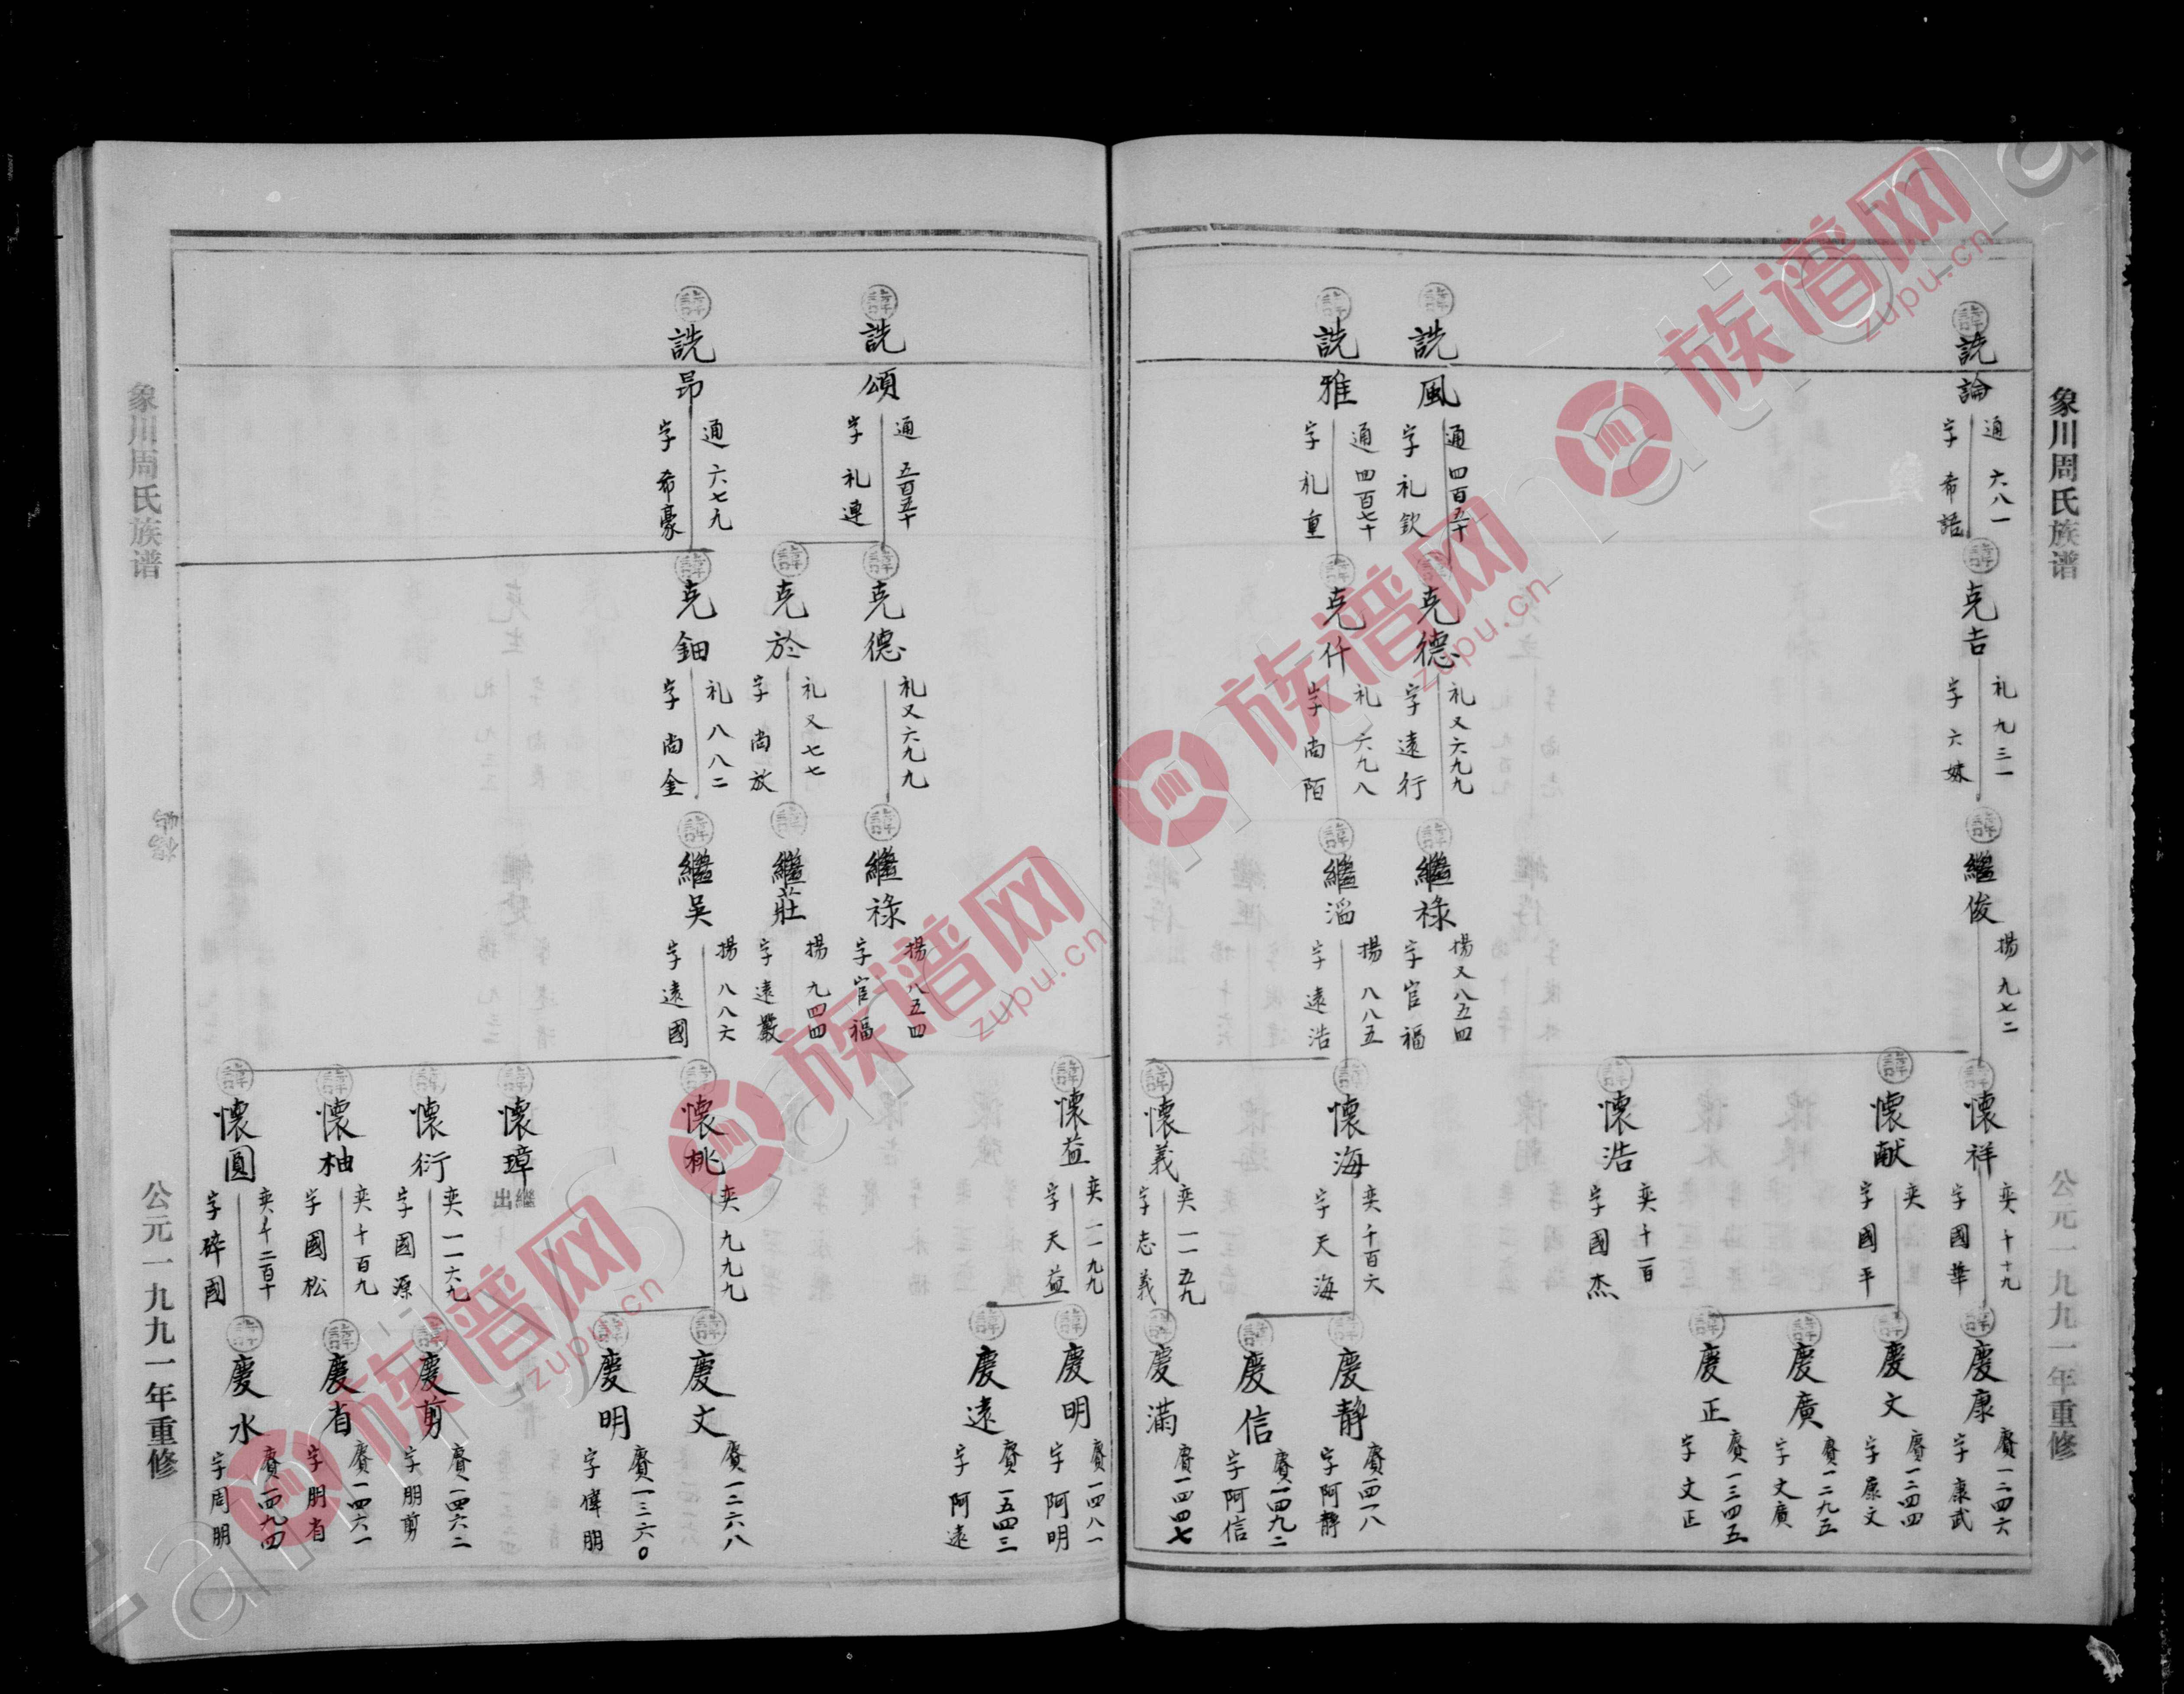 象川周氏族谱
公元一九九一年重修
諱 詵論
通六八一
字希語
諱 詵風
通四百五十
字礼欽
諱 詵雅
通四百七十
字礼重
諱 克吉
礼九三一
字六妹
諱 克德
礼又六九九
字遠行
諱 克仟
礼六九八
字尚陌
諱 繼俊
揚九七二
諱 繼祿
揚又八五四
字官福
諱 繼滔
揚八八五
字遠浩
諱 懷祥
奕十十九
字國華
諱 懷献
奕
字國平
諱 懷浩
奕十一百
字國杰
諱 懷海
奕千百六
字天海
諱 懷義
奕一一五九
字志義
諱 慶康
賡一二四六
字康武
諱 慶文
賡一二四四
字康文
諱 慶廣
賡一二九五
字文廣
諱 慶正
賡一三四五
字文正
諱 慶静
賡一四一八
字阿静
諱 慶信
賡一四九二
字阿信
諱 慶滿
賡一四四七
諱 詵頌
通五百五十
字礼連
諱 詵昂
通六七九
字希豪
諱 克德
礼又六九九
諱 克於
礼又七七
字尚放
諱 克鈿
礼八八二
字尚金
諱 繼祿
揚八五四
字官福
諱 繼莊
揚九四四
字遠嚴
諱 繼吳
揚八八六
字遠國
諱 懷益
奕一一九九
字天益
諱 懷桃
奕九九九
諱 懷璋
繼出
諱 懷衍
奕一一六九
字國源
諱 懷柚
奕十百九
字國松
諱 懷圓
奕千二百十
字碎國
諱 慶明
賡一四八一
字阿明
諱 慶遠
賡一五四三
字阿遠
諱 慶文
賡一二六八
諱 慶明
賡一三六〇
字偉朋
諱 慶剪
賡一四六二
字朋剪
諱 慶省
賡一四六一
字朋省
諱 慶水
賡一四九四
字周朋
象川周氏族谱
公元一九九一年重修
族谱网
zupu.cn
族谱网
zupu.cn
族谱网
zupu.cn
族谱网
zupu.cn